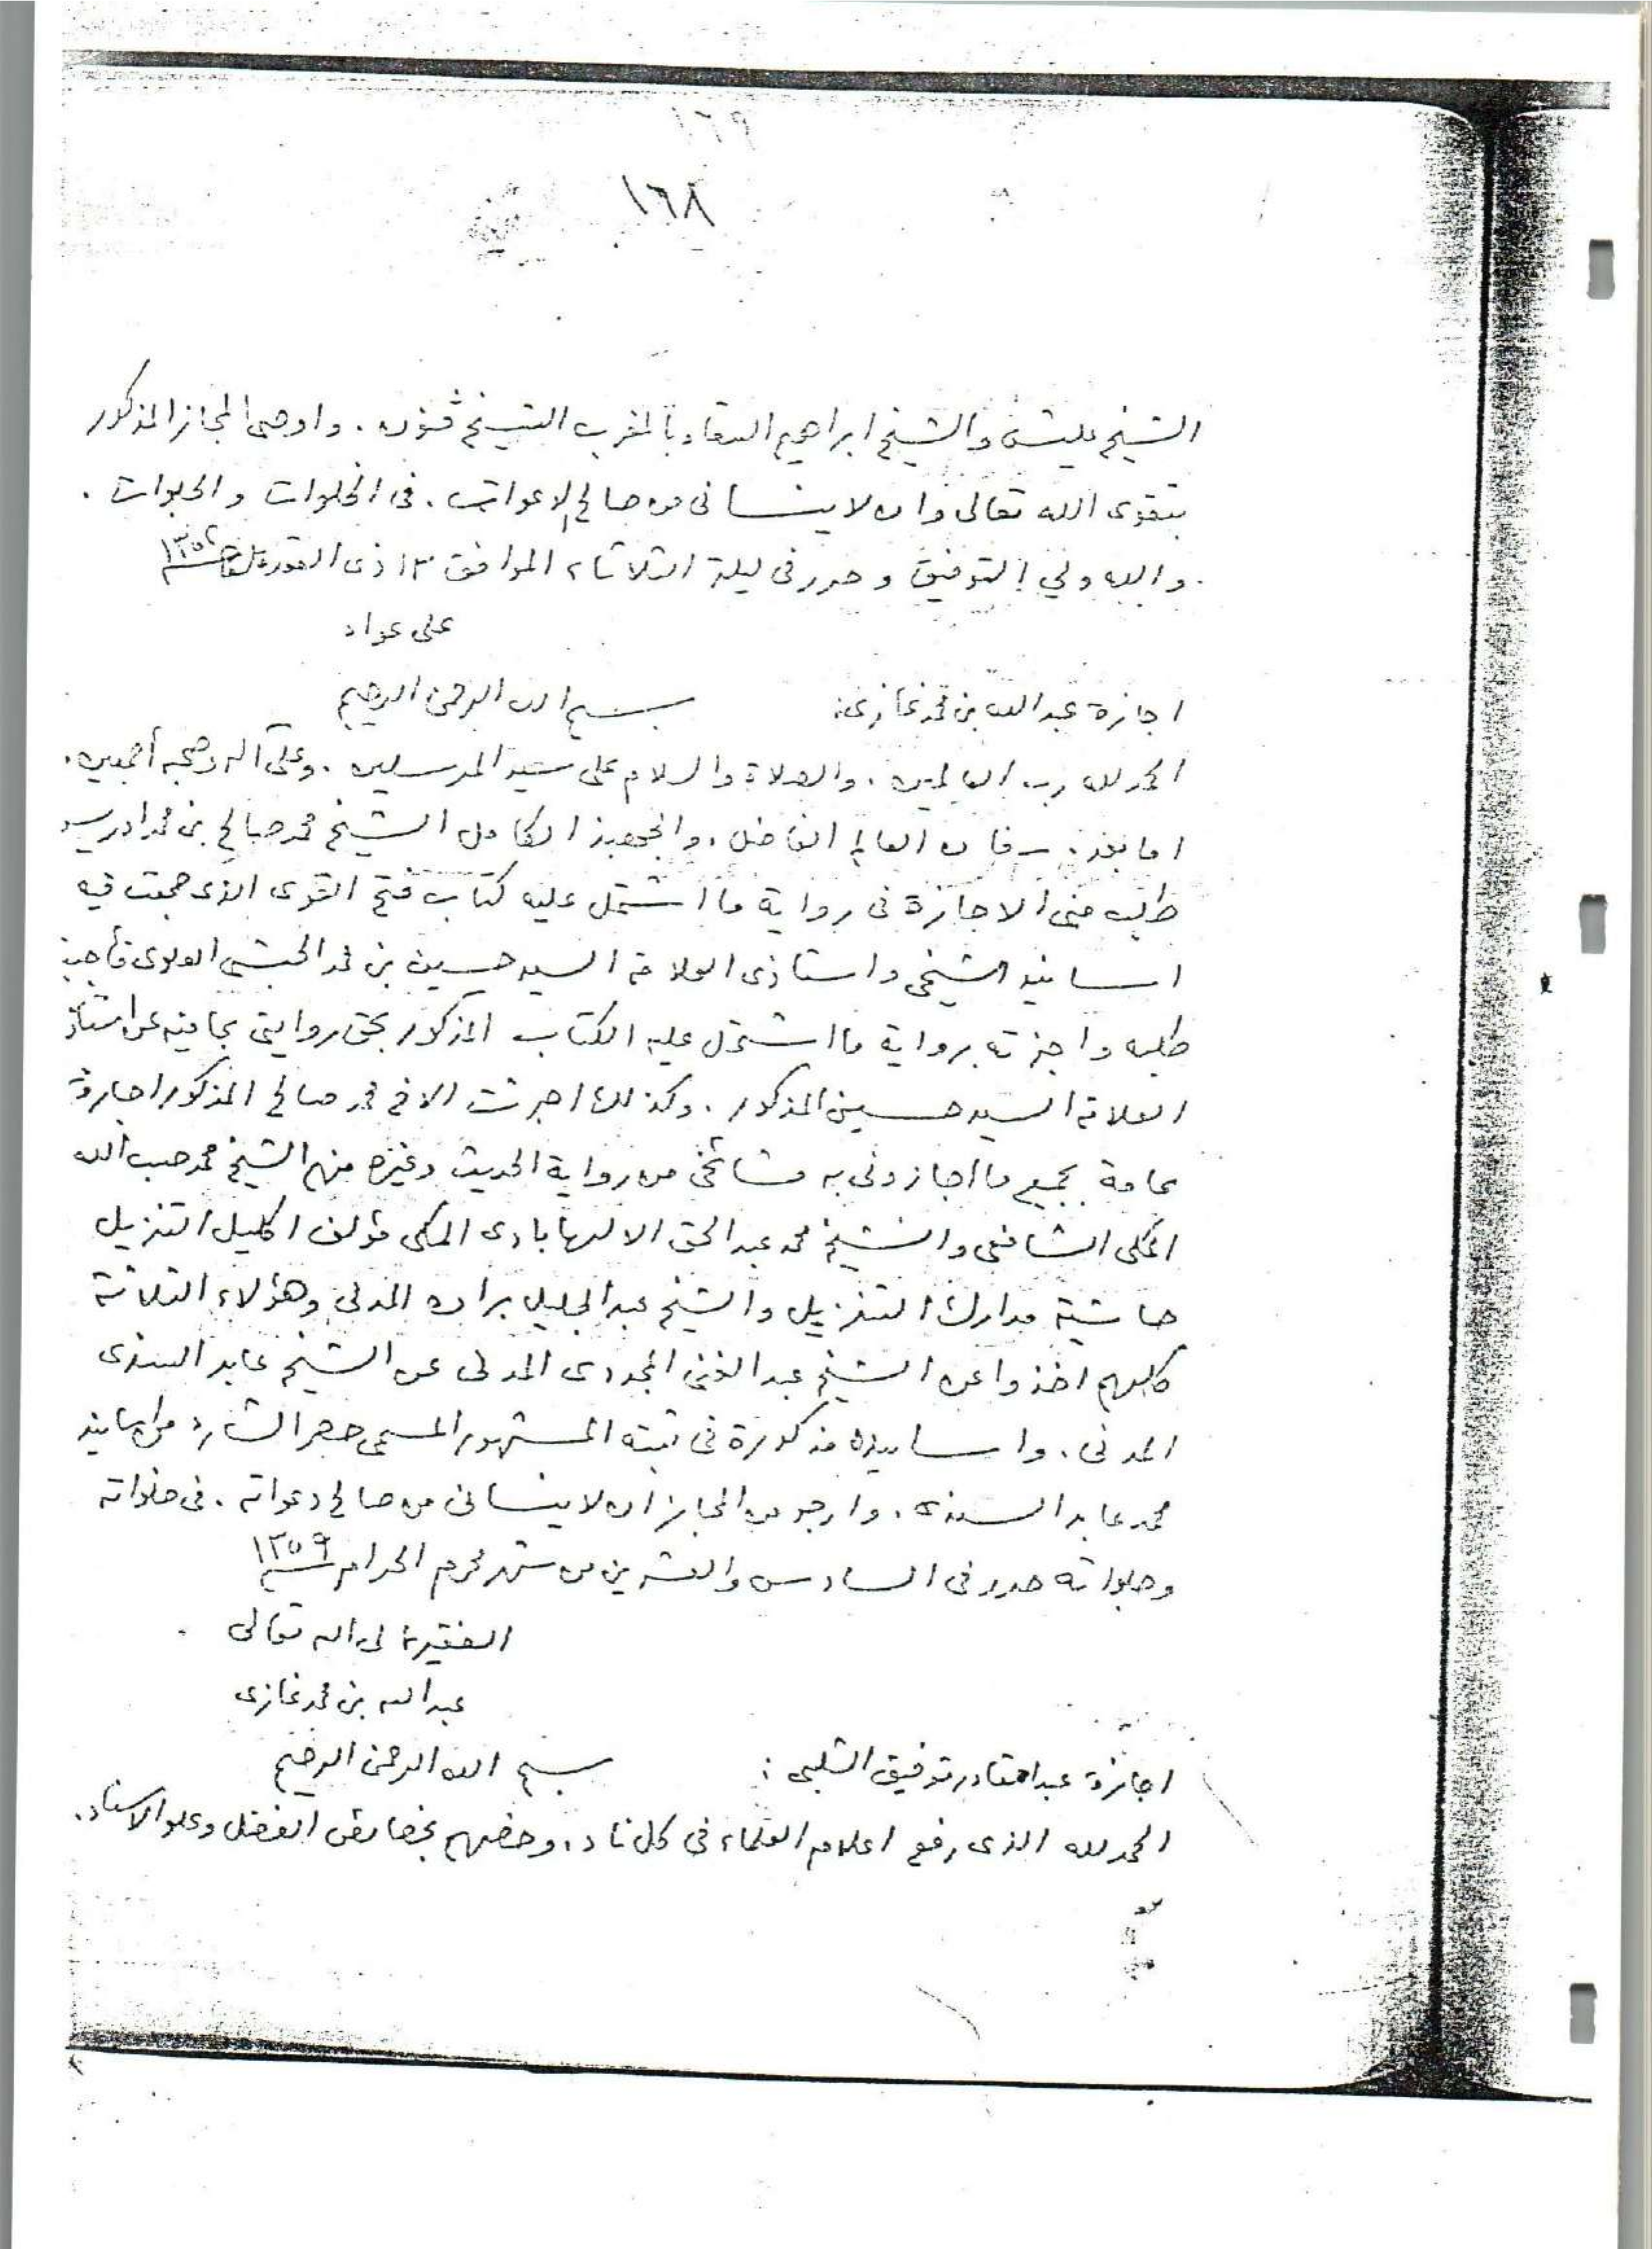 ١٦٩
١٦٨
الشيخ عليش والشيخ ابراهيم السقا وبالمغرب الشيخ ڤنون . واوصى المجاز المذكور
بتقوى الله تعالى وان لا ينسانى من صالح الدعوات . فى الخلوات والجلوات .
والله ولي التوفيق وحرر فى ليلة الثلاثاء الموافق ١٣ ذى القعدة
على عواد
اجازة عبد الله بن محمد غازى: بسم الله الرحمن الرحيم
الحمد لله رب العالمين . والصلاة والسلام على سيد المرسلين . وعلى آله وصحبه أجمعين .
اما بعد . فان العالم الفاضل . والجهبذ الكامل الشيخ محمد صالح بن محمد ادريس
طلب منى الاجازة فى رواية ما اشتمل عليه كتاب فتح القوى الذى جمعت فيه
اسانيد شيخى واستاذى العلامة السيد حسين بن محمد الحبشى العلوى فأجبت
طلبه واجزته برواية ما اشتمل عليه الكتاب المذكور بحق روايتى بما فيه عن استاذ
العلامة السيد حسين المذكور . وكذلك اجزت الاخ محمد صالح المذكور اجازة
عامة بجميع ما اجازونى به مشائخى من رواية الحديث وغيره منهم الشيخ محمد حسب الله
المكى الشافعى والشيخ محمد عبد الحق الالهابادى المكى مؤلف اكليل التنزيل
حاشية مدارك التنزيل والشيخ عبد الجليل براده المدنى وهؤلاء الثلاثة
كلهم اخذوا عن الشيخ عبد الغنى المجددى المدنى عن الشيخ عابد السندى
المدنى . واسانيده مذكورة فى ثبته المشهور المسمى حصر الشارد من اسانيد
محمد عابد السندى . وارجو من المجاز ان لا ينسانى من صالح دعواته . فى خلواته
وجلواته حرر فى السادس والعشرين من شهر محرم الحرام سنة ١٣٥٩
الفقير الى الله تعالى
عبد الله بن محمد غازى
اجازة عبد القادر توفيق الشلبى : بسم الله الرحمن الرحيم
الحمد لله الذى رفع اعلام العلماء فى كل ناد ، وخصهم بخصائص الفضل وعلو الاسناد .